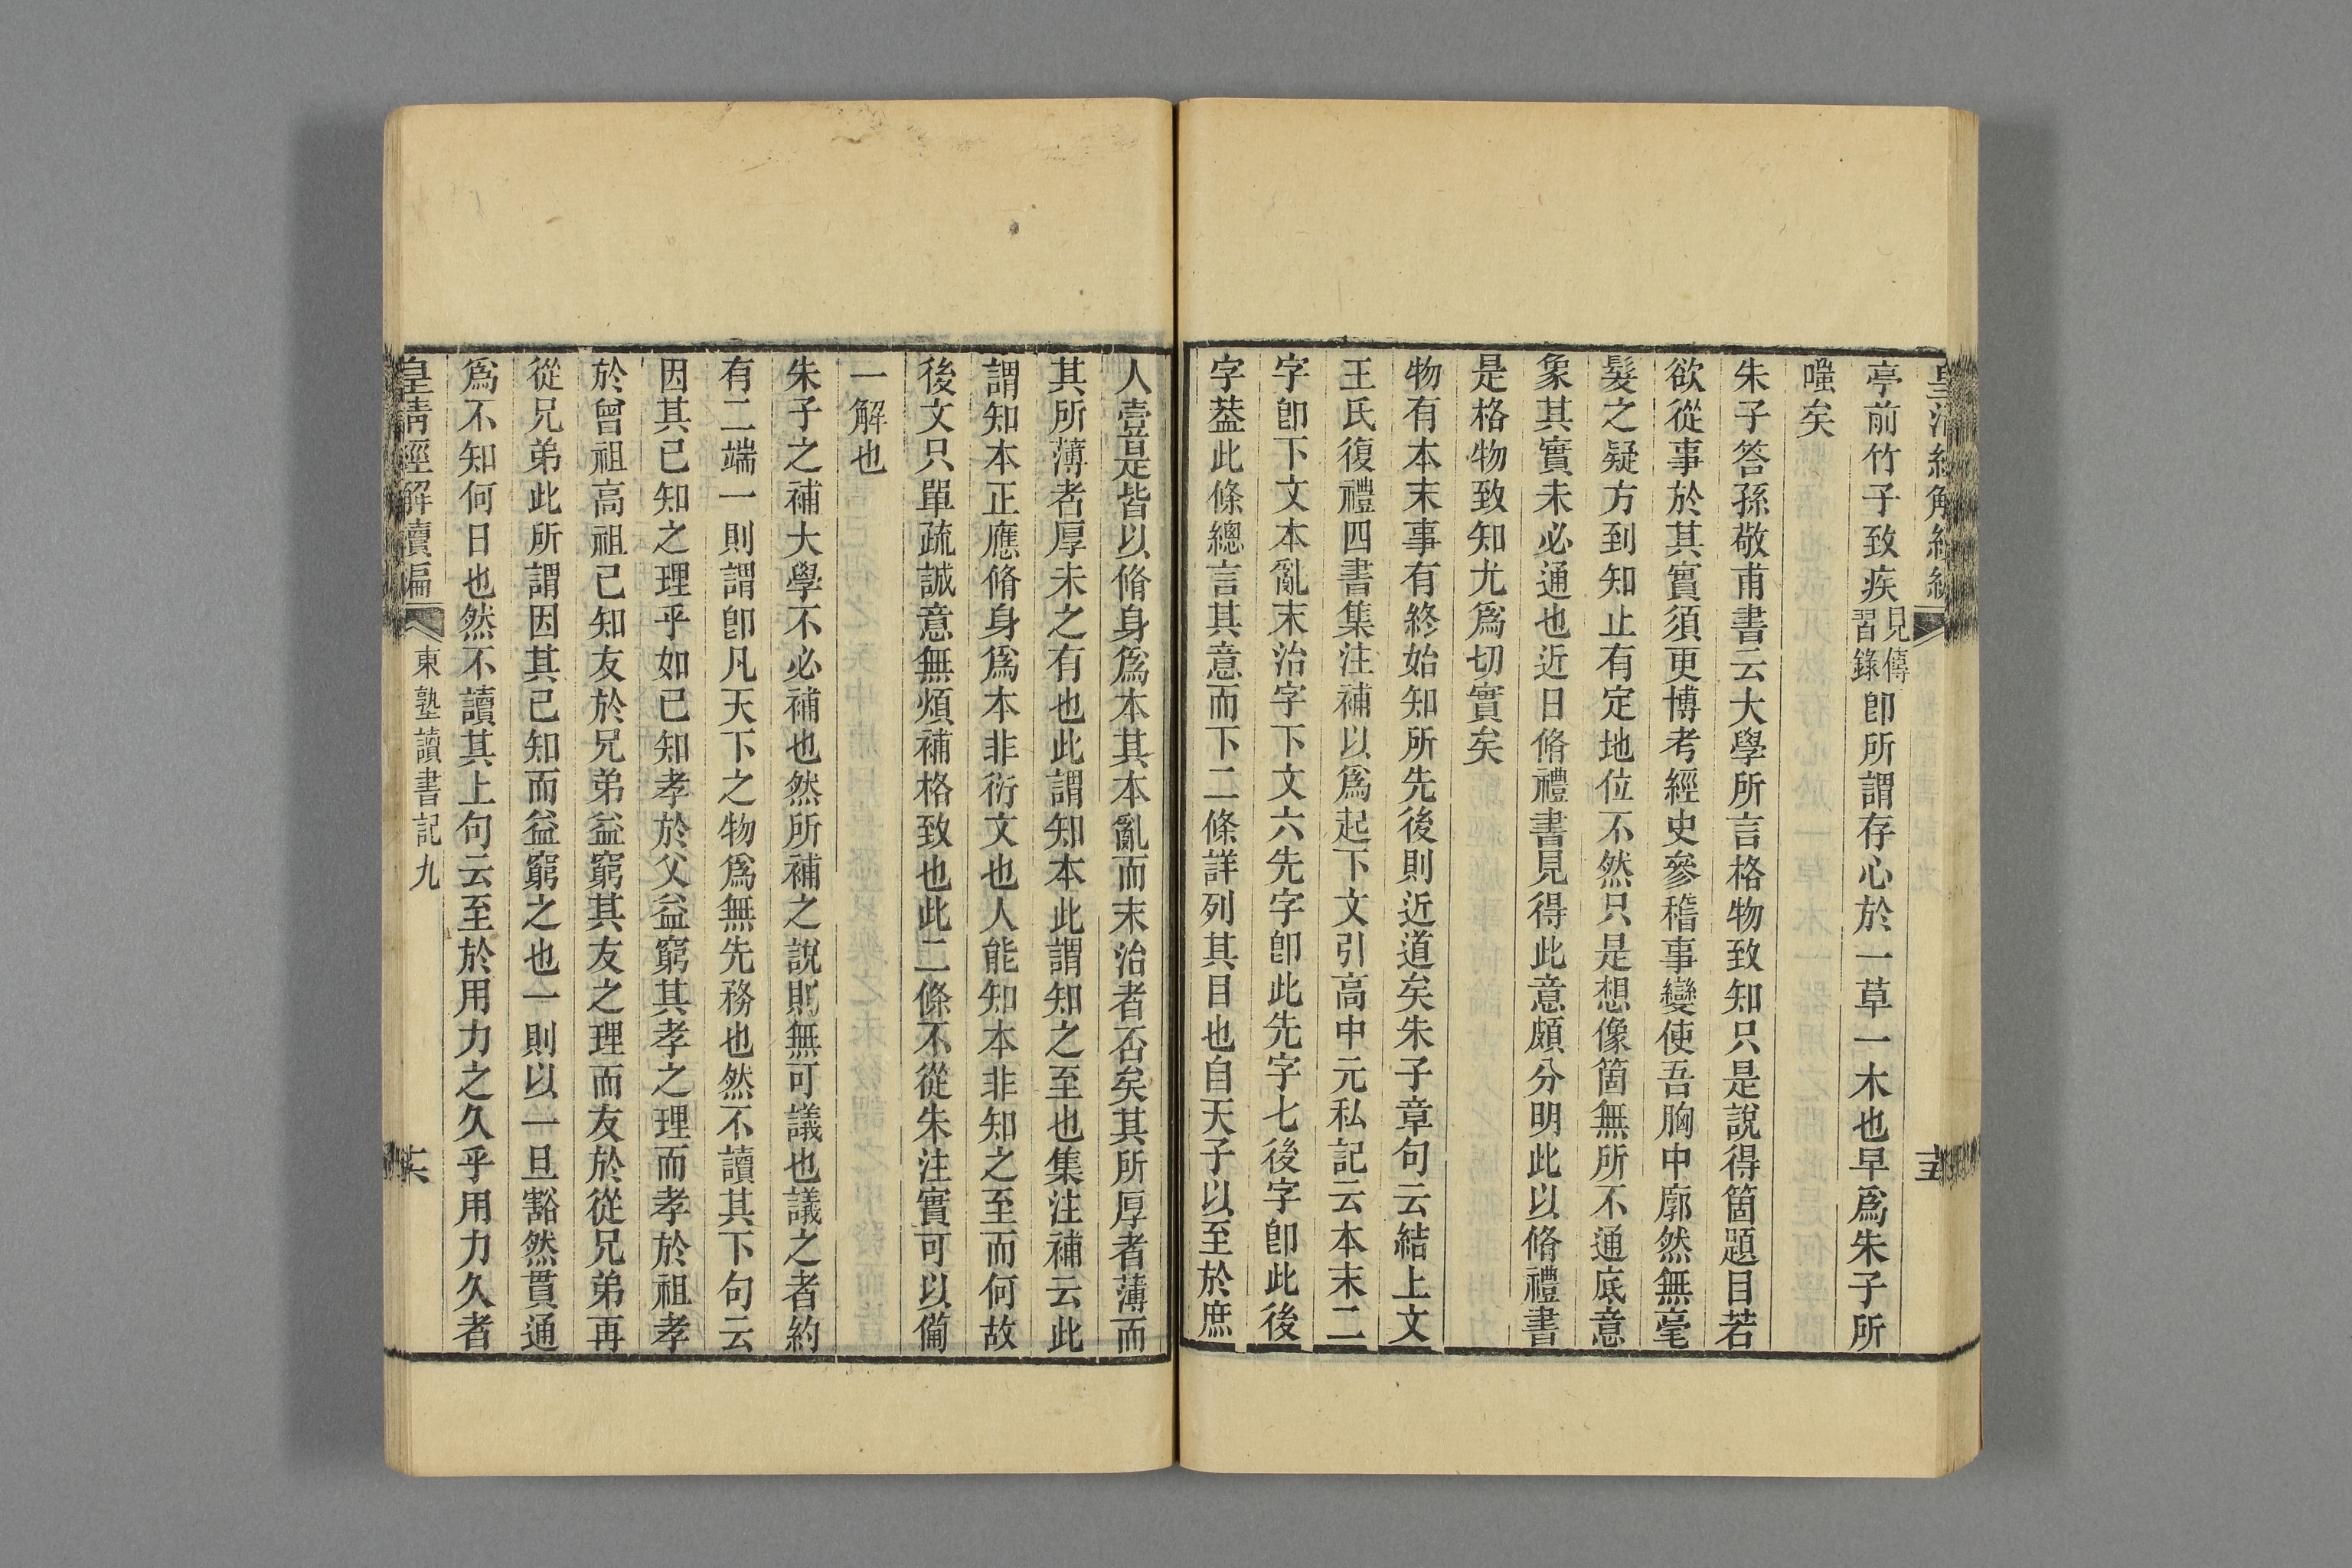 亭前竹子致疾見傳習錄卽所謂存心於一草一木也早爲朱子所
嗤矣
朱子答孫敬甫書云大學所言格物致知只是說得箇題目若
欲從事於其實須更博考經史參稽事變使吾胸中廓然無毫
髮之疑方到知止有定地位不然只是想像箇無所不通底意
象其實未必通也近日脩禮書見得此意頗分明此以脩禮書
是格物致知尤爲切實矣
物有本末事有終始知所先後則近道矣朱子章句云結上文
王氏復禮四書集注補以爲起下文引高中元私記云本末二
字卽下文本亂末治字下文六先字卽此先字七後字卽此後
字葢此條總言其意而下二條詳列其目也自天子以至於庶
人壹是皆以脩身爲本其本亂而末治者否矣其所厚者薄而
其所薄者厚未之有也此謂知本此謂知之至也集注補云此
謂知本正應脩身爲本非衍文也人能知本非知之至而何故
後文只單疏誠意無煩補格致也此二條不從朱注實可以備
一解也
朱子之補大學不必補也然所補之說則無可議也議之者約
有二端一則謂卽凡天下之物爲無先務也然不讀其下句云
因其已知之理乎如已知孝於父益窮其孝之理而孝於祖孝
於曾祖高祖已知友於兄弟益窮其友之理而友於從兄弟再
從兄弟此所謂因其已知而益窮之也一則以一旦豁然貫通
爲不知何日也然不讀其上句云至於用力之久乎用力久者
皇清經解續編 東塾讀書記九